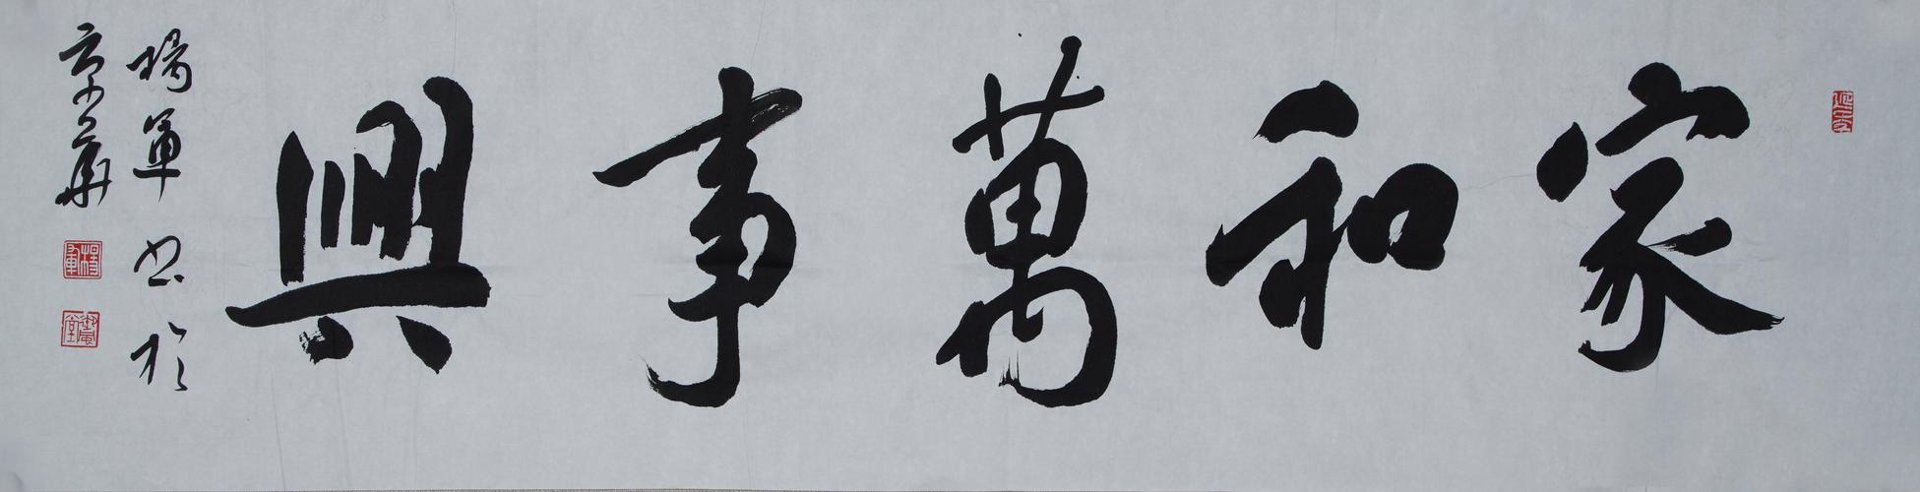 家和萬事興
楊軍书於
京華